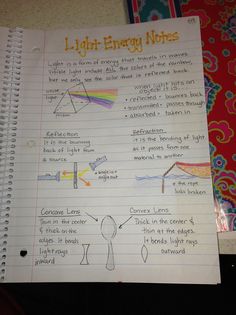 Light Energy Notes
Light is a form of energy that travels in waves.
Visible light include ALL the colors of the rainbow,
but we only see the color that is reflected back.
white
light
when light hits an
object it is...
• reflected = bounces back
• transmitted = passes through
• absorbed = taken in
Reflection
It is the bouncing
back of light from
a source
Refraction
it is the bending of light
as it passes from one
material to another
angle in =
angle out
the rope
looks broken
Concave Lens
Thin in the center
& thick on the
edges. It bends
light rays
inward
Convex Lens
Thick in the center &
thin at the edges.
It bends light rays
outward